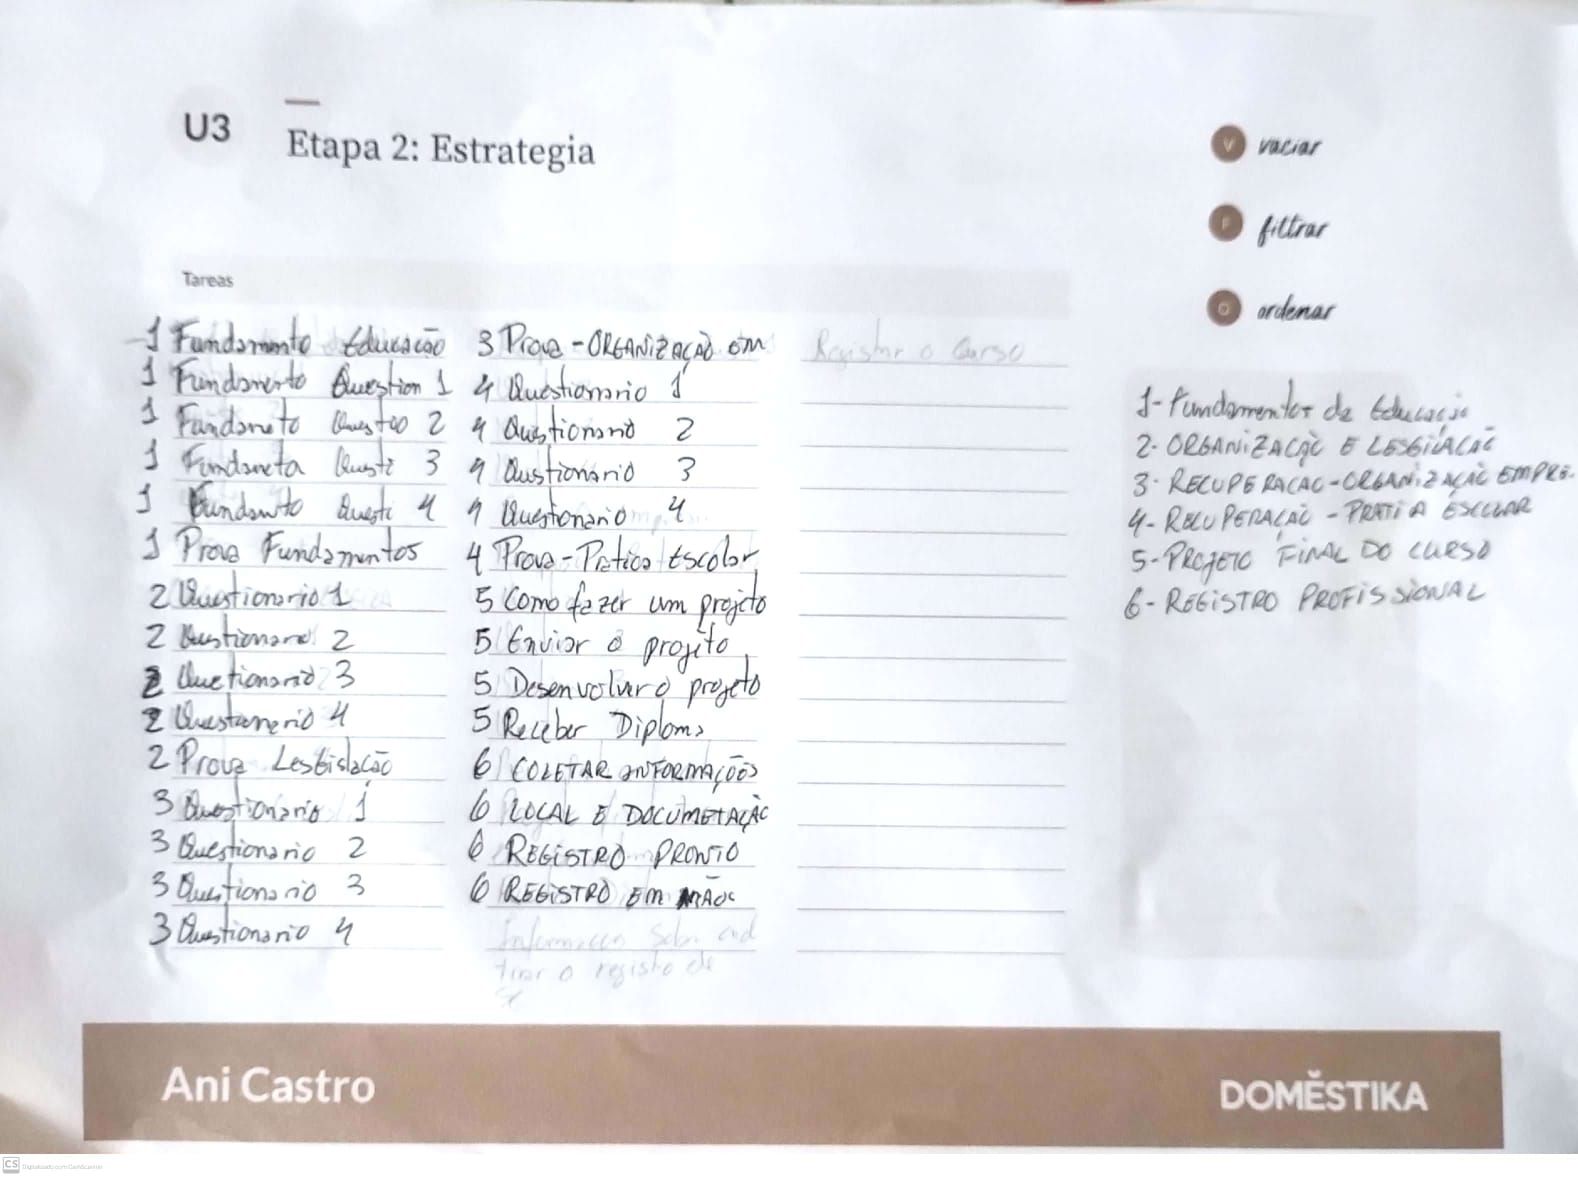 U3
Etapa 2: Estrategia
V vaciar
F filtrar
O ordenar
Tareas
1 Fundamento Educação
1 Fundamento Question 1
1 Fundameto Questão 2
1 Fundameta Questi 3
1 Fundamto Questi 4
1 Prova Fundamentos
2 Questionario 1
2 Questionario 2
2 Questionario 3
2 Questionario 4
2 Prova Lesgislação
3 Questionario 1
3 Questionario 2
3 Questionario 3
3 Questionario 4
3 Prova - ORGANIZAÇÃO EM
4 Questionario 1
4 Questionario 2
4 Questionario 3
4 Questionario 4
4 Prova - Pratica Escolar
5 Como fazer um projeto
5 Enviar o projeto
5 Desenvolver o projeto
5 Receber Diploma
6 COLETAR INFORMAÇÕES
6 LOCAL E DOCUMETAÇÃO
6 REGISTRO PRONTO
6 REGISTRO EM MÃOS
tirar o registo de
Registar o Curso
1- Fundamentos da Educação
2- ORGANIZAÇÃO E LESGILAÇÃO
3- RECUPERACAO - ORGANIZAÇÃO EMPRE.
4- RECUPERAÇÃO - PRATIA ESCOLAR
5- PROJETO FINAL DO CURSO
6- REGISTRO PROFISSIONAL
Ani Castro
DOMĚSTIKA
CS Digitalizado com CamScanner